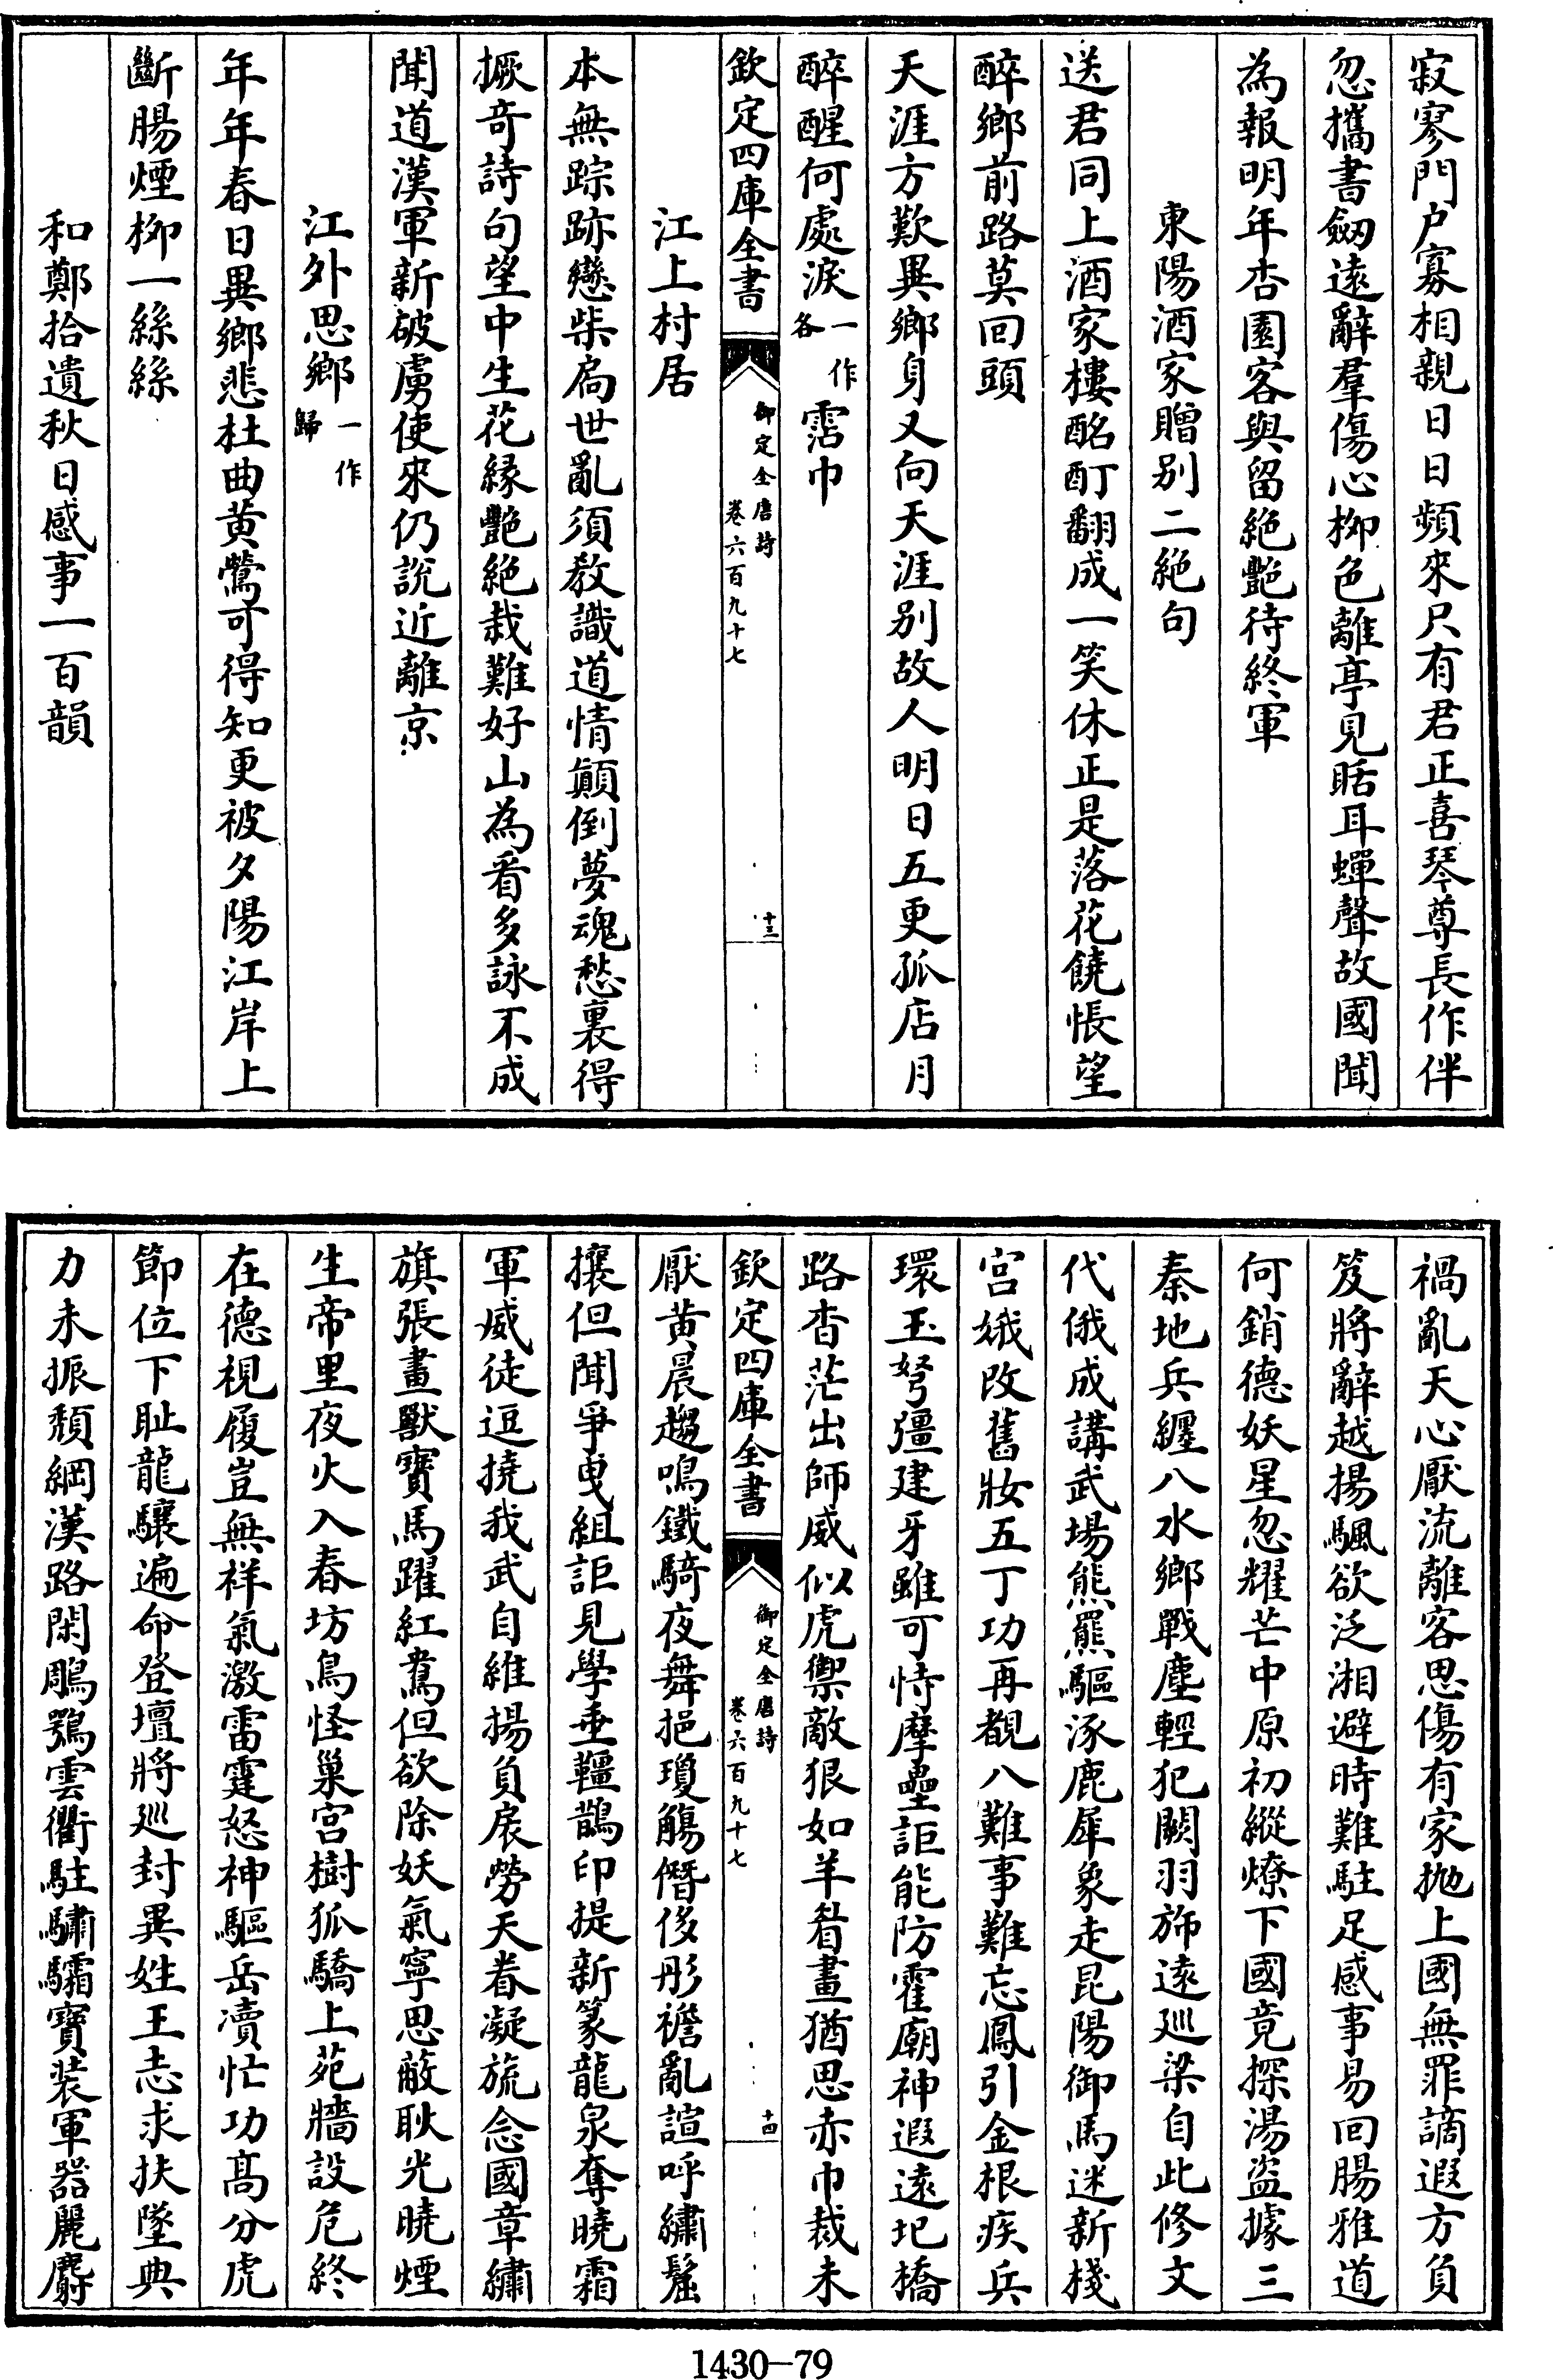 寂寥門户寡相親日日頻來只有君正喜琴尊長作伴
忽攜書劒遠辭羣傷心栁色離亭見聒耳蟬聲故國聞
為報明年杏園客與留絶艶待終軍
東陽酒家贈别二絶句
送君同上酒家樓酩酊翻成一笑休正是落花饒悵望
醉鄉前路莫回頭
天涯方歎異鄉身又向天涯别故人明日五更孤店月
醉醒何處淚一作各霑巾
欽定四庫全書
御定全唐詩
卷六百九十七
十三
江上村居
本無踪跡戀柴扃世亂須教識道情顛倒夢魂愁裏得
撅竒詩句望中生花縁艶絶栽難好山為看多詠不成
聞道漢軍新破虜使來仍說近離京
江外思鄉一作歸
年年春日異鄉悲杜曲黄鶯可得知更被夕陽江岸上
斷腸煙栁一絲絲
和鄭拾遺秋日感事一百韻
禍亂天心厭流離客思傷有家抛上國無罪謫遐方負
笈將辭越揚颿欲泛湘避時難駐足感事易回腸雅道
何銷德妖星忽耀芒中原初縱燎下國竟探湯盗據三
秦地兵纒八水鄉戰塵輕犯闕羽斾遠廵梁自此修文
代俄成講武塲熊羆驅涿鹿犀象走昆陽御馬迷新棧
宫娥改舊妝五丁功再覩八難事難忘鳳引金根疾兵
環玉弩彊建牙雖可恃摩壘詎能防霍廟神遐遠圯橋
路杳茫出師威似虎禦敵狠如羊眉畫猶思赤巾裁未
欽定四庫全書
御定全唐詩
卷六百九十七
十四
厭黄晨趨鳴鐵騎夜舞挹瓊觴僭侈彤襜亂諠呼繡鬛
攘但聞爭曵組詎見學垂韁鵲印提新篆龍泉奪曉霜
軍威徒逗撓我武自維揚負扆勞天眷凝旒念國章繡
旗張畫獸寶馬躍紅鴦但欲除妖氣寧思蔽耿光曉煙
生帝里夜火入春坊鳥怪巢宫樹狐驕上苑牆設危終
在德視履豈無祥氣激雷霆怒神驅岳瀆忙功髙分虎
節位下耻龍驤遍命登壇將廵封異姓王志求扶墜典
力未振頽綱漢路閑鵰鶚雲衢駐驌驦寶裝軍器麗麝
1430—79